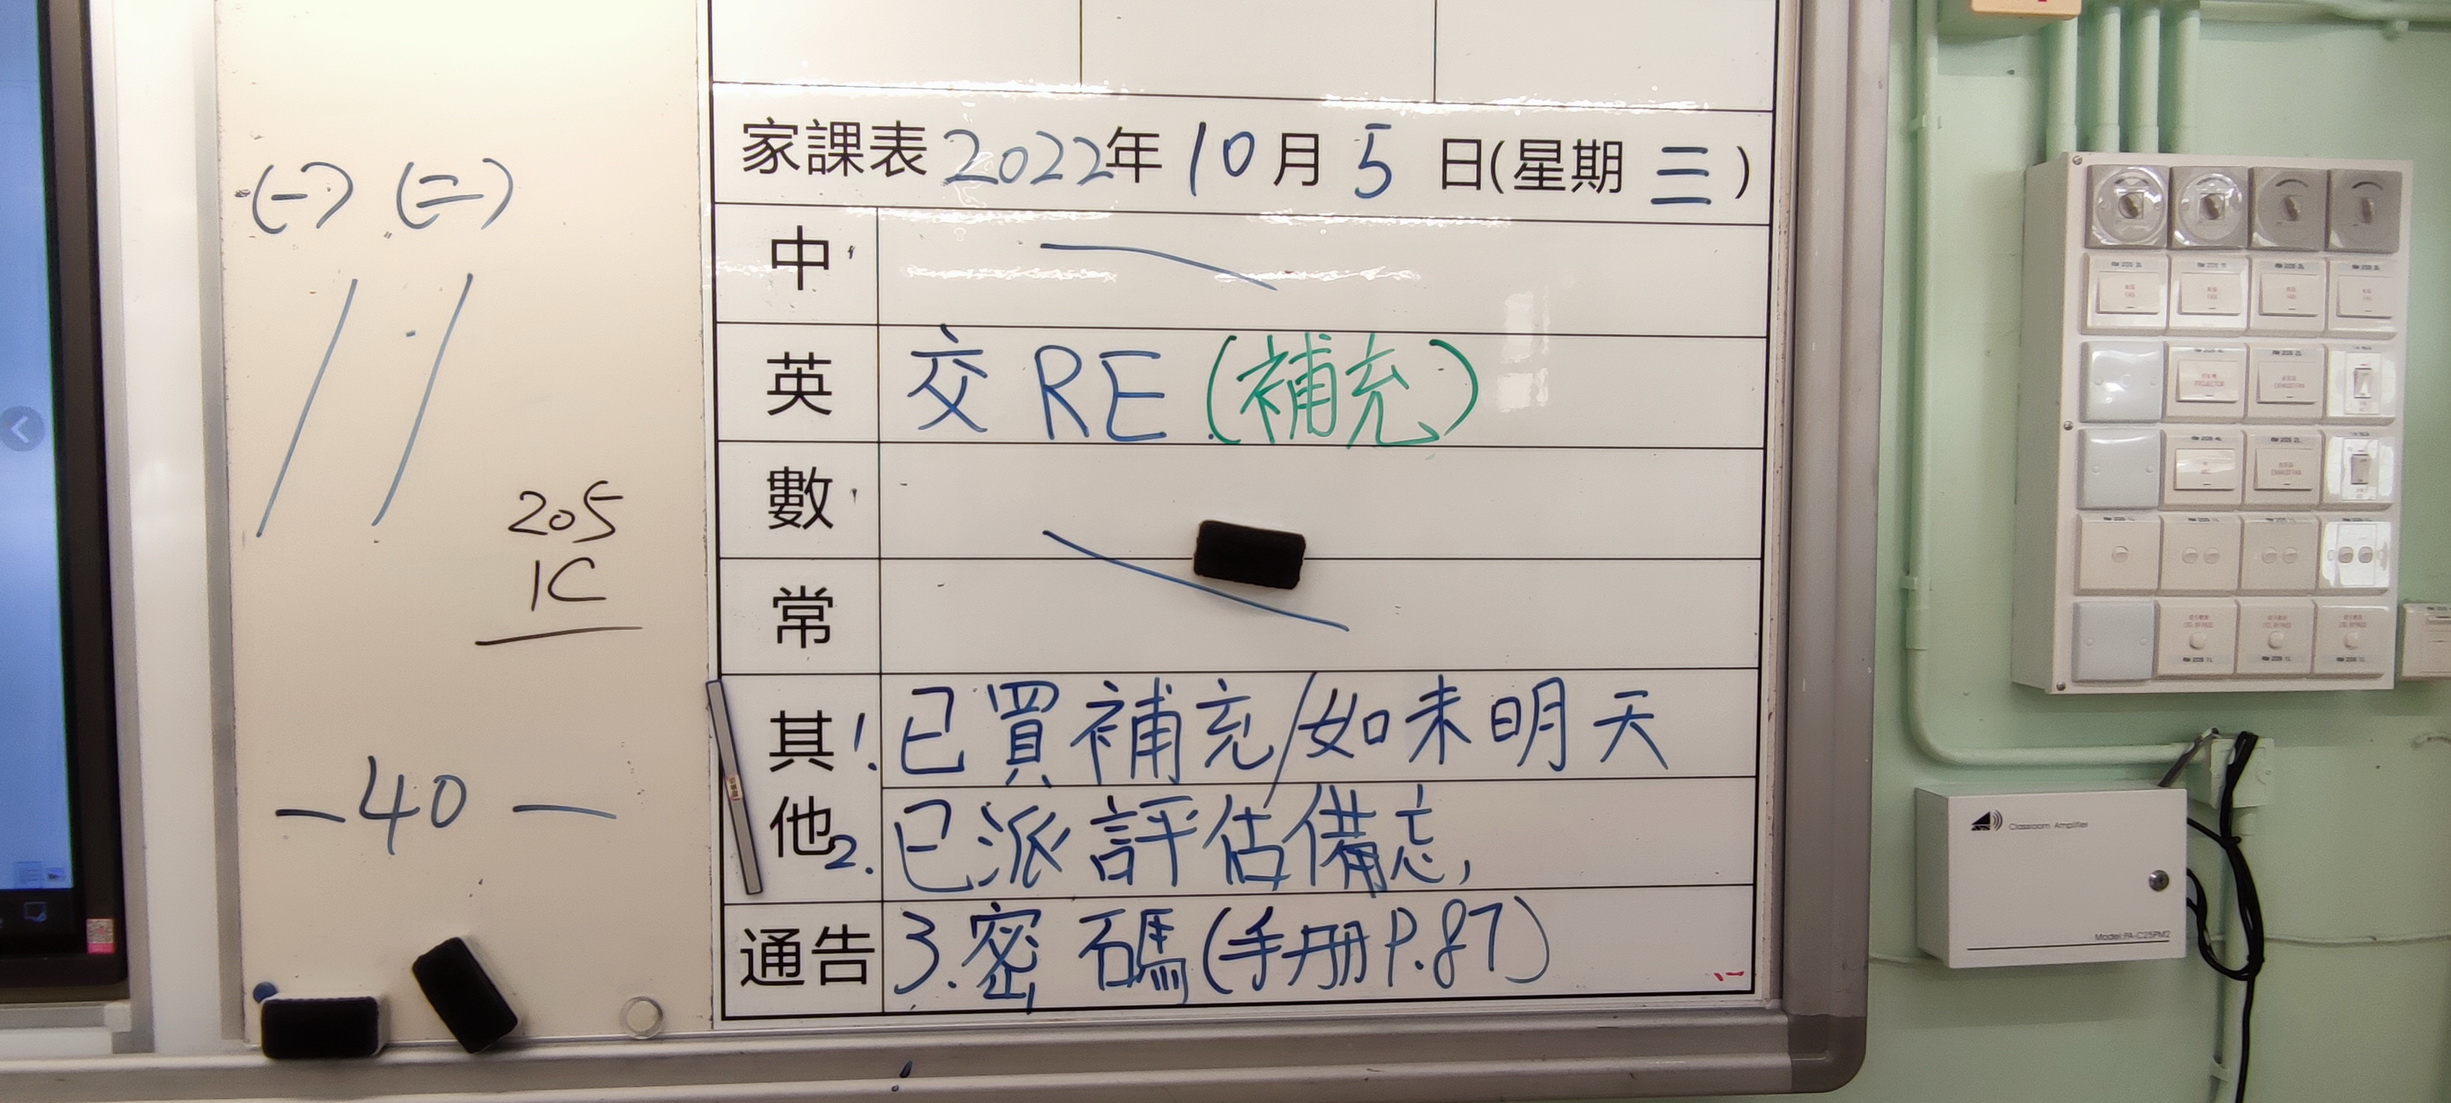 (一) (二)
205
1C
— 40 —
家課表 2022年 10月 5日(星期三)
中
英 交 RE (補充)
數
常
其他 1. 已買補充/如未明天
2. 已派評估備忘,
通告 3. 密碼(手册P.87)
Classroom Amplifier
Model:PA-C25PM2